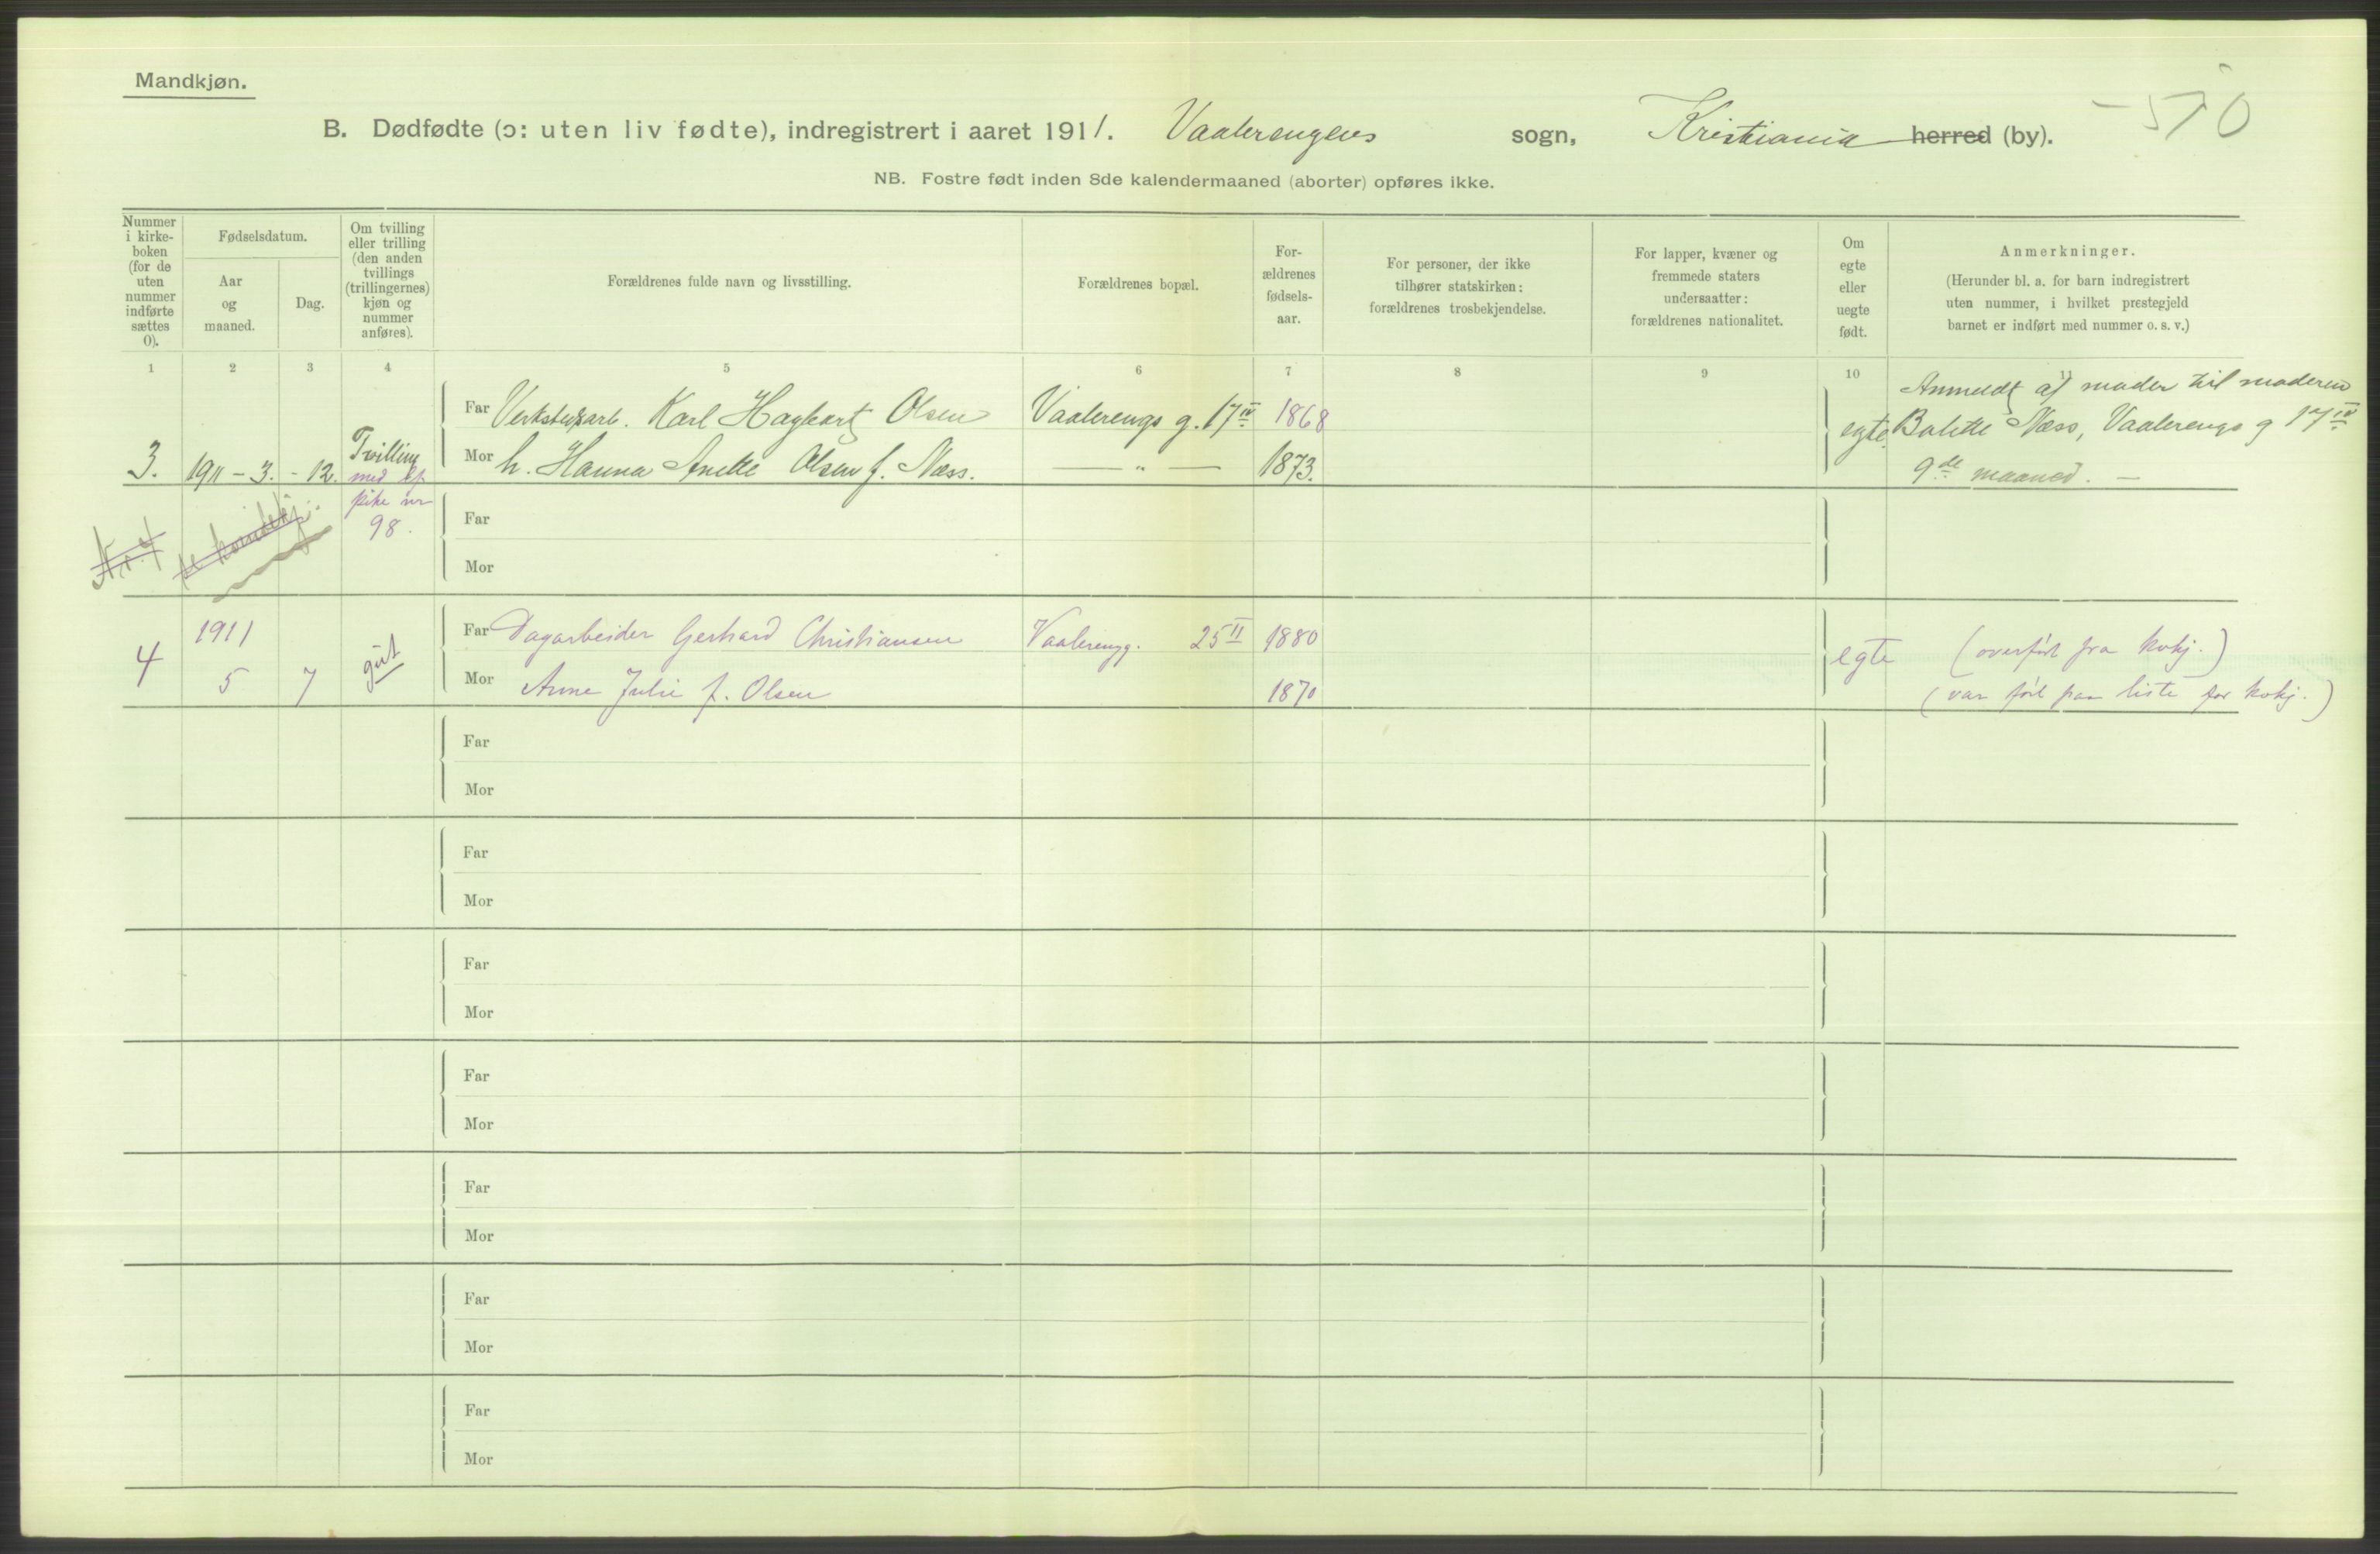 Mandkjøn.
B. Dødfødte (ɔ: uten liv fødte), indregistrert i aaret 1911. Vaalerengens sogn, Kristiania herred (by).
NB. Fostre født inden 8de kalendermaaned (aborter) opføres ikke.
Nummer i kirke-boken (for de uten nummer indførte sættes 0).
Fødselsdatum.
Aar og maaned.
Dag.
Om tvilling eller trilling (den anden tvillings (trillingernes) kjøn og nummer anføres).
Forældrenes fulde navn og livsstilling.
Forældrenes bopæl.
For-ældrenes fødsels-aar.
For personer, der ikke tilhører statskirken: forældrenes trosbekjendelse.
For lapper, kvæner og fremmede staters undersaatter: forældrenes nationalitet.
Om egte eller uegte født.
Anmerkninger.
(Herunder bl. a. for barn indregistrert uten nummer, i hvilket prestegjeld barnet er indført med nummer o. s. v.)
1 2 3 4 5 6 7 8 9 10 11
Anmeldt af moder til moderen
Far Verkstedsarb. Karl Hagbart Olsen Vaalerengs g. 17 IV 1868
egte Bolette Næss, Vaalerengs g 17 IV
3. 1911 - 3. - 12. Tvilling
Mor h. Hanna Anette Olsen f. Næss. — " — 1873.
9de maaned. —
med
pike nr
98.
Nr. 4
Far
Mor
4 1911 5 7 gut
Far Dagarbeider Gerhard Christiansen Vaalerengg. 25 II 1880
egte (overført fra kvkj.)
Mor Anne Julie f. Olsen 1870
(var ført paa liste for kvkj.)
Far
Mor
Far
Mor
Far
Mor
Far
Mor
Far
Mor
Far
Mor
Far
Mor